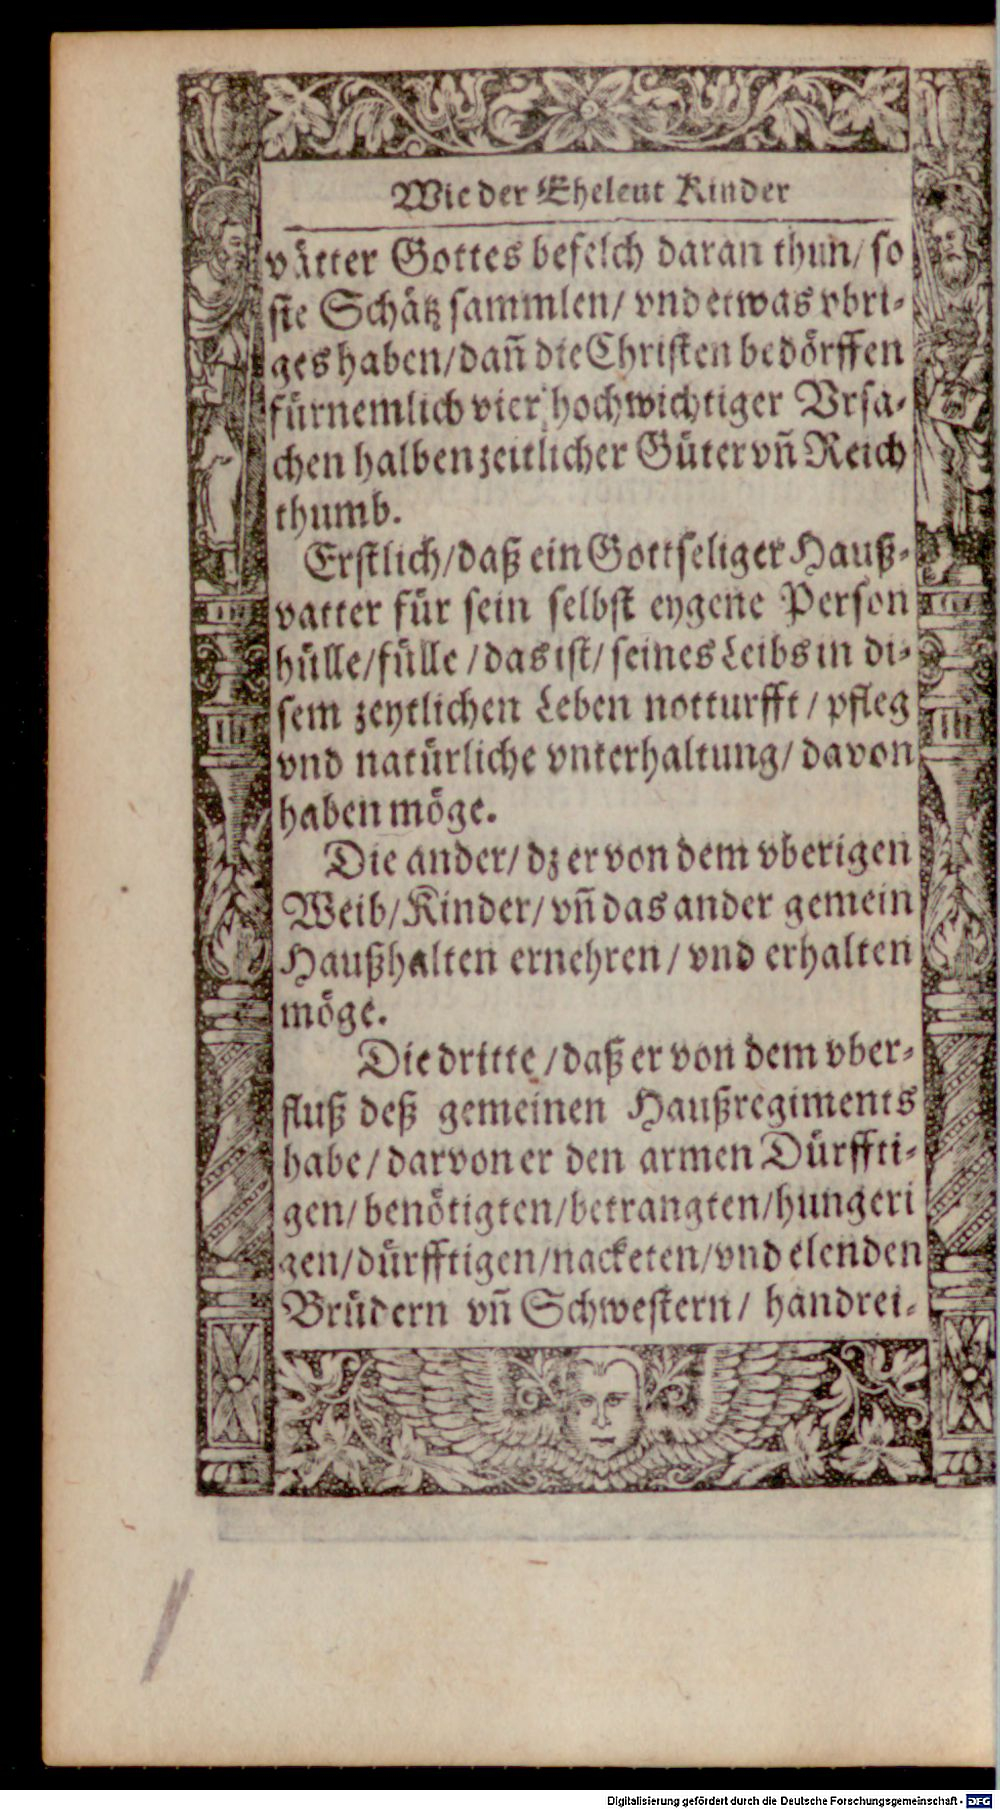 Wie der Eheleut Kinder
vätter Gottes befelch daran thun/ so
sie Schätz sammlen/ vnd etwas vbri-
ges haben/ dañ die Christen bedörffen
fürnemlich vier hochwichtiger Vrsa-
chen halben zeitlicher Güter vñ Reich
thumb.
Erstlich/ daß ein Gottseliger Hauß-
vatter für sein selbst eygene Person
hülle/ fülle / das ist/ seines Leibs in di-
sem zeytlichen Leben notturfft / pfleg
vnd natürliche vnterhaltung/ davon
haben möge.
Die ander/ dz er von dem vberigen
Weib/ Kinder/ vñ das ander gemein
Haußhalten ernehren / vnd erhalten
möge.
Die dritte / daß er von dem vber-
fluß deß gemeinen Haußregiments
habe / darvon er den armen Dürffti-
gen/ benötigten/ betrangten/ hungeri
gen/ dürfftigen/ nacketen/ vnd elenden
Brüdern vñ Schwestern/ handrei-
Digitalisierung gefördert durch die Deutsche Forschungsgemeinschaft - DFG